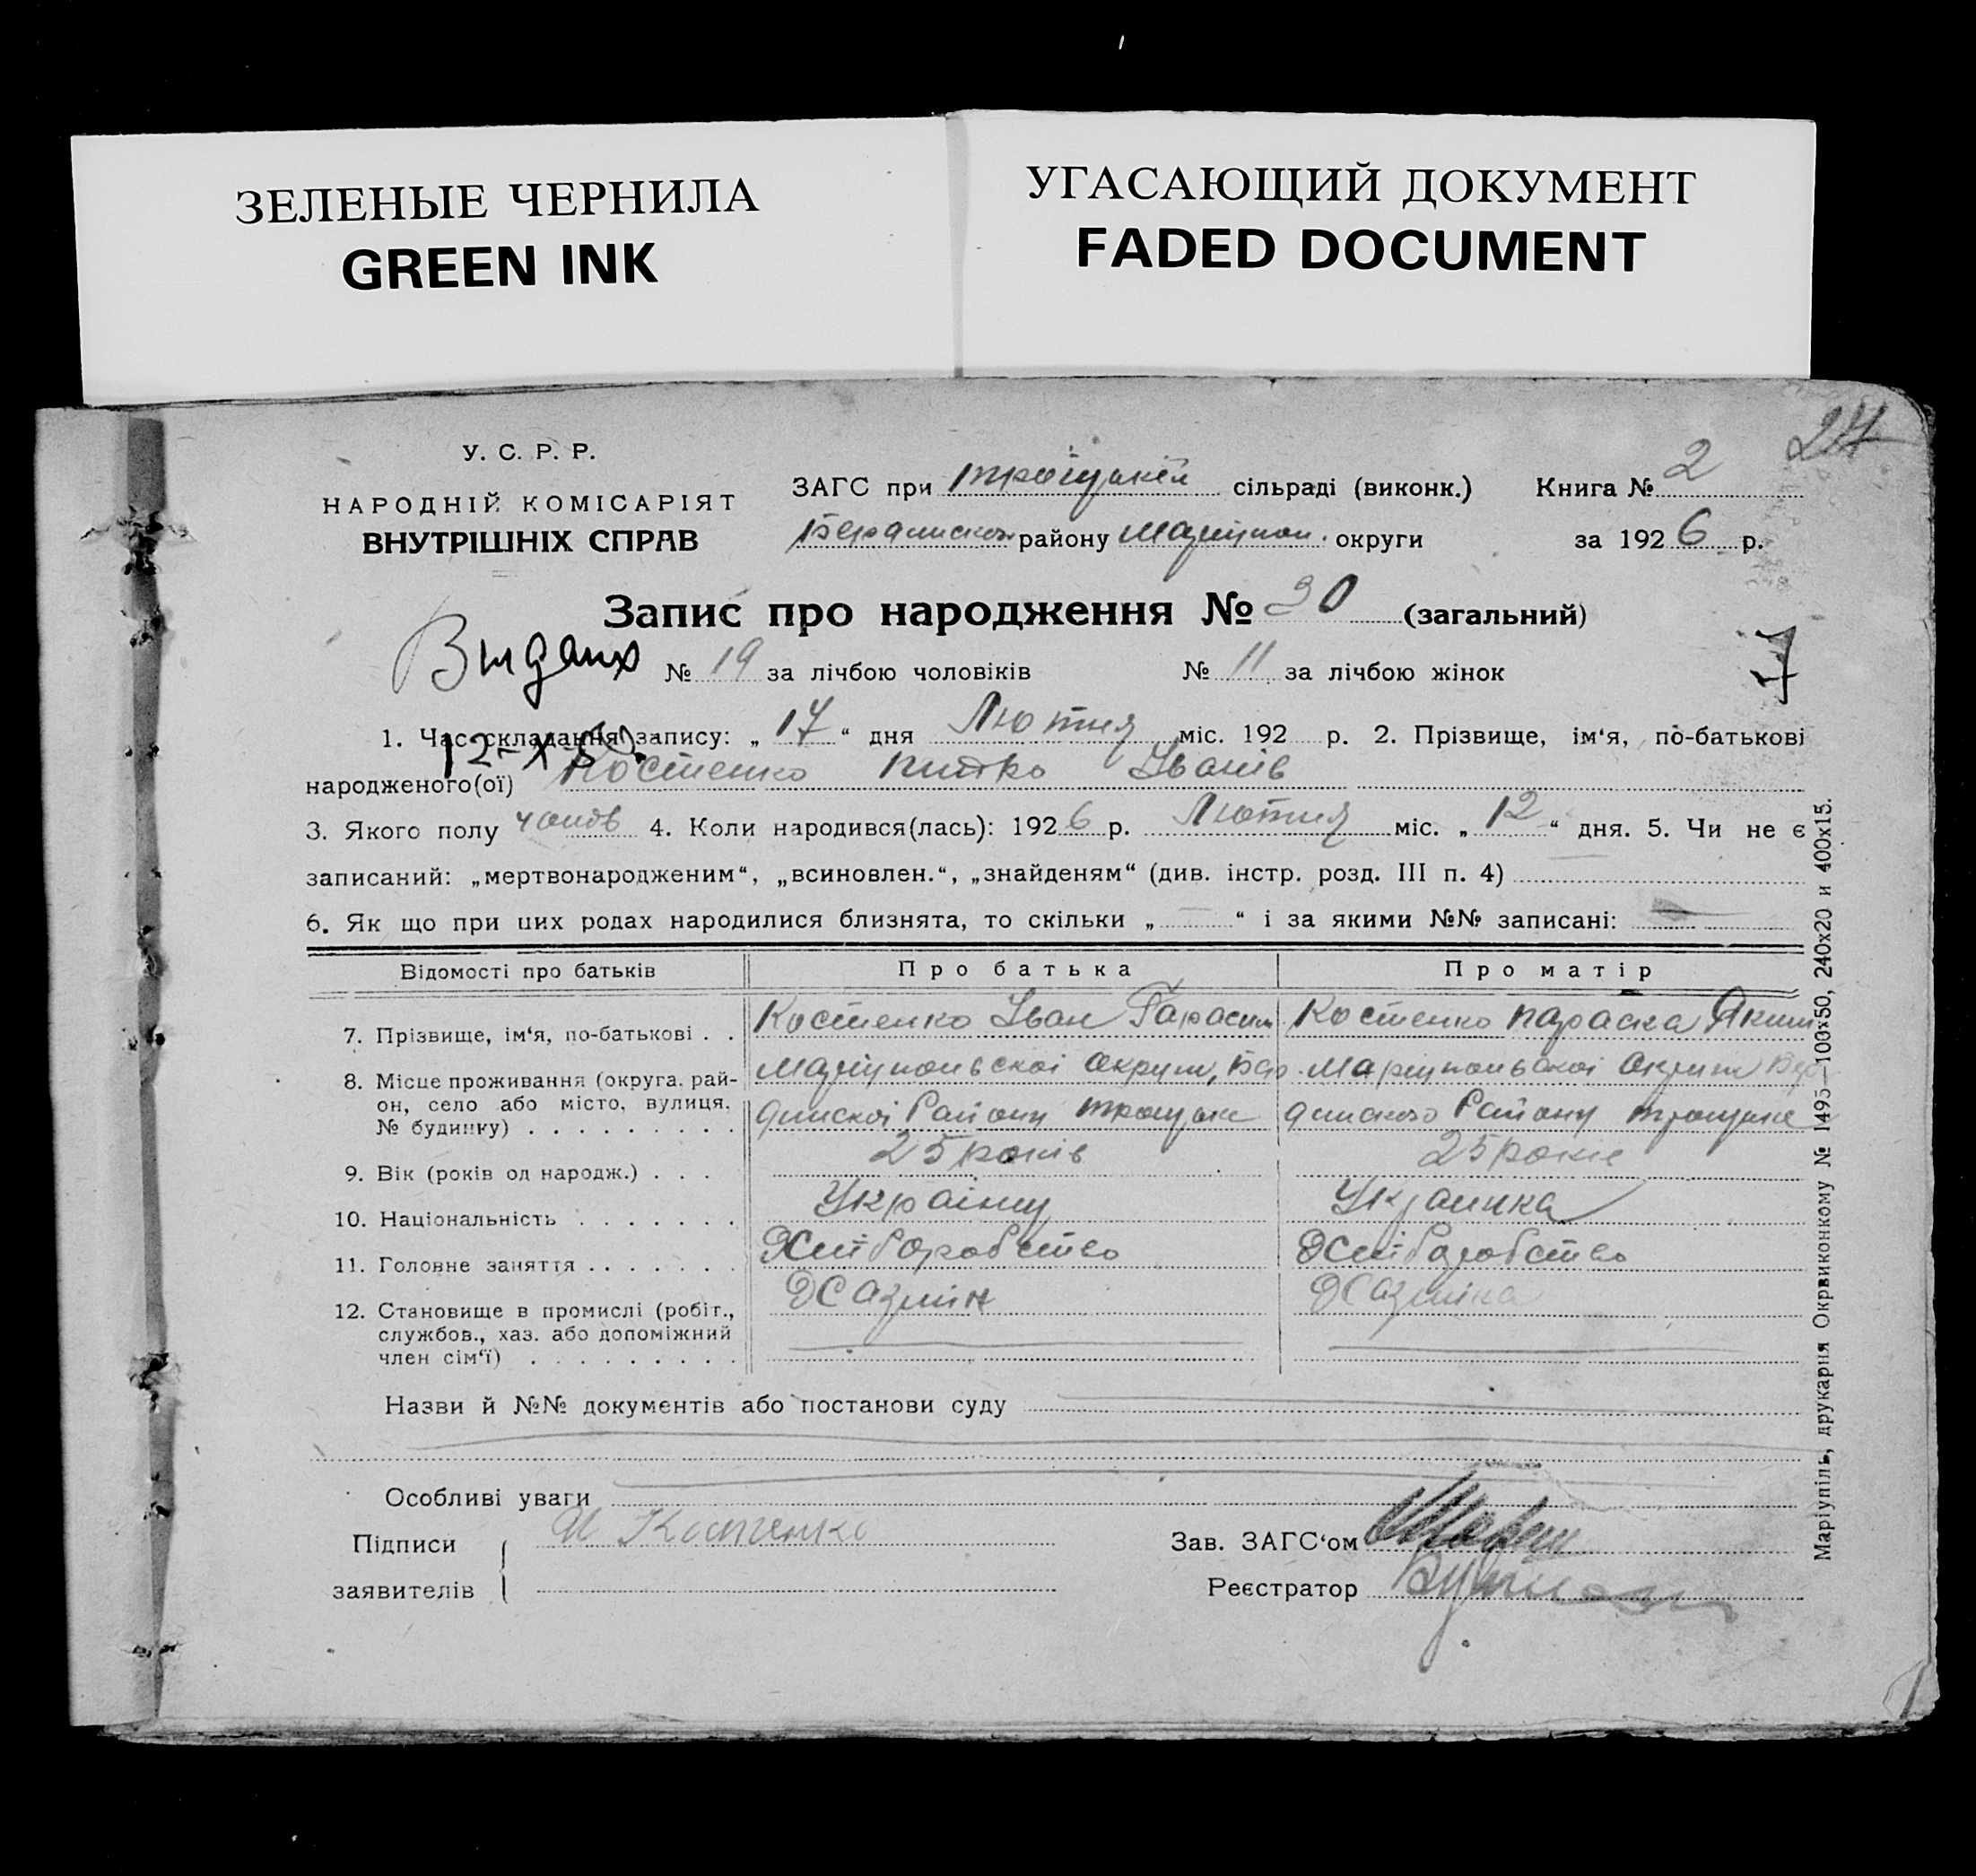 ЗЕЛЕНЫЕ ЧЕРНИЛА
GREEN INK
УГАСАЮЩИЙ ДОКУМЕНТ
FADED DOCUMENT
У. С. Р. Р.
НАРОДНІЙ КОМІСАРІЯТ
ВНУТРІШНІХ СПРАВ
ЗАГС при сільраді (виконк.) Книга № 2
району округи за 1926 р.
Запис про народження № 30 (загальний)
№ 19 за лічбою чоловіків № 11 за лічбою жінок
1. Час складання запису: „17“ дня Лютня міс. 192 р. 2. Прізвище, ім'я, по-батькові
народженого(ої) Костенко Іванів
3. Якого полу 4. Коли народився(лась): 1926 р. Лютня міс. „12“ дня. 5. Чи не є
записаний: „мертвонародженим“, „всиновлен.“, „знайденям“ (див. інстр. розд. III п. 4)
6. Як що при цих родах народилися близнята, то скільки „ “ і за якими №№ записані:
Відомості про батьків Про батька Про матір
7. Прізвище, ім'я, по-батькові . . Костенко Іван Гарасим Костенко Параска Яким
8. Місце проживання (округа, рай-
он, село або місто, вулиця,
№ будинку) . . . . . . . . .
9. Вік (років од народж.) . . . 25 років 25 років
10. Національність . . . . . . . Україниц Украинка
11. Головне заняття . . . . . . . Хліборобство Хліборобство
12. Становище в промислі (робіт., Хазяин Хазяіна
службов., хаз. або допоміжний
член сім'ї) . . . . . . . . .
Назви й №№ документів або постанови суду
Особливі уваги
Підписи И Костенко Зав. ЗАГС'ом
заявителів Реєстратор
Маріупіль, друкарня Окрвиконкому № 1495—100x50, 240x20 и 400x15.